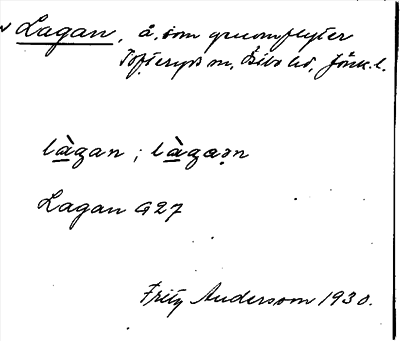 Lagan, å, som genomflyter
Tofteryds sn, Östbo hd, Jönk. l.
làgan ; làgaən
Lagan G27
Fritz Andersson 1930.